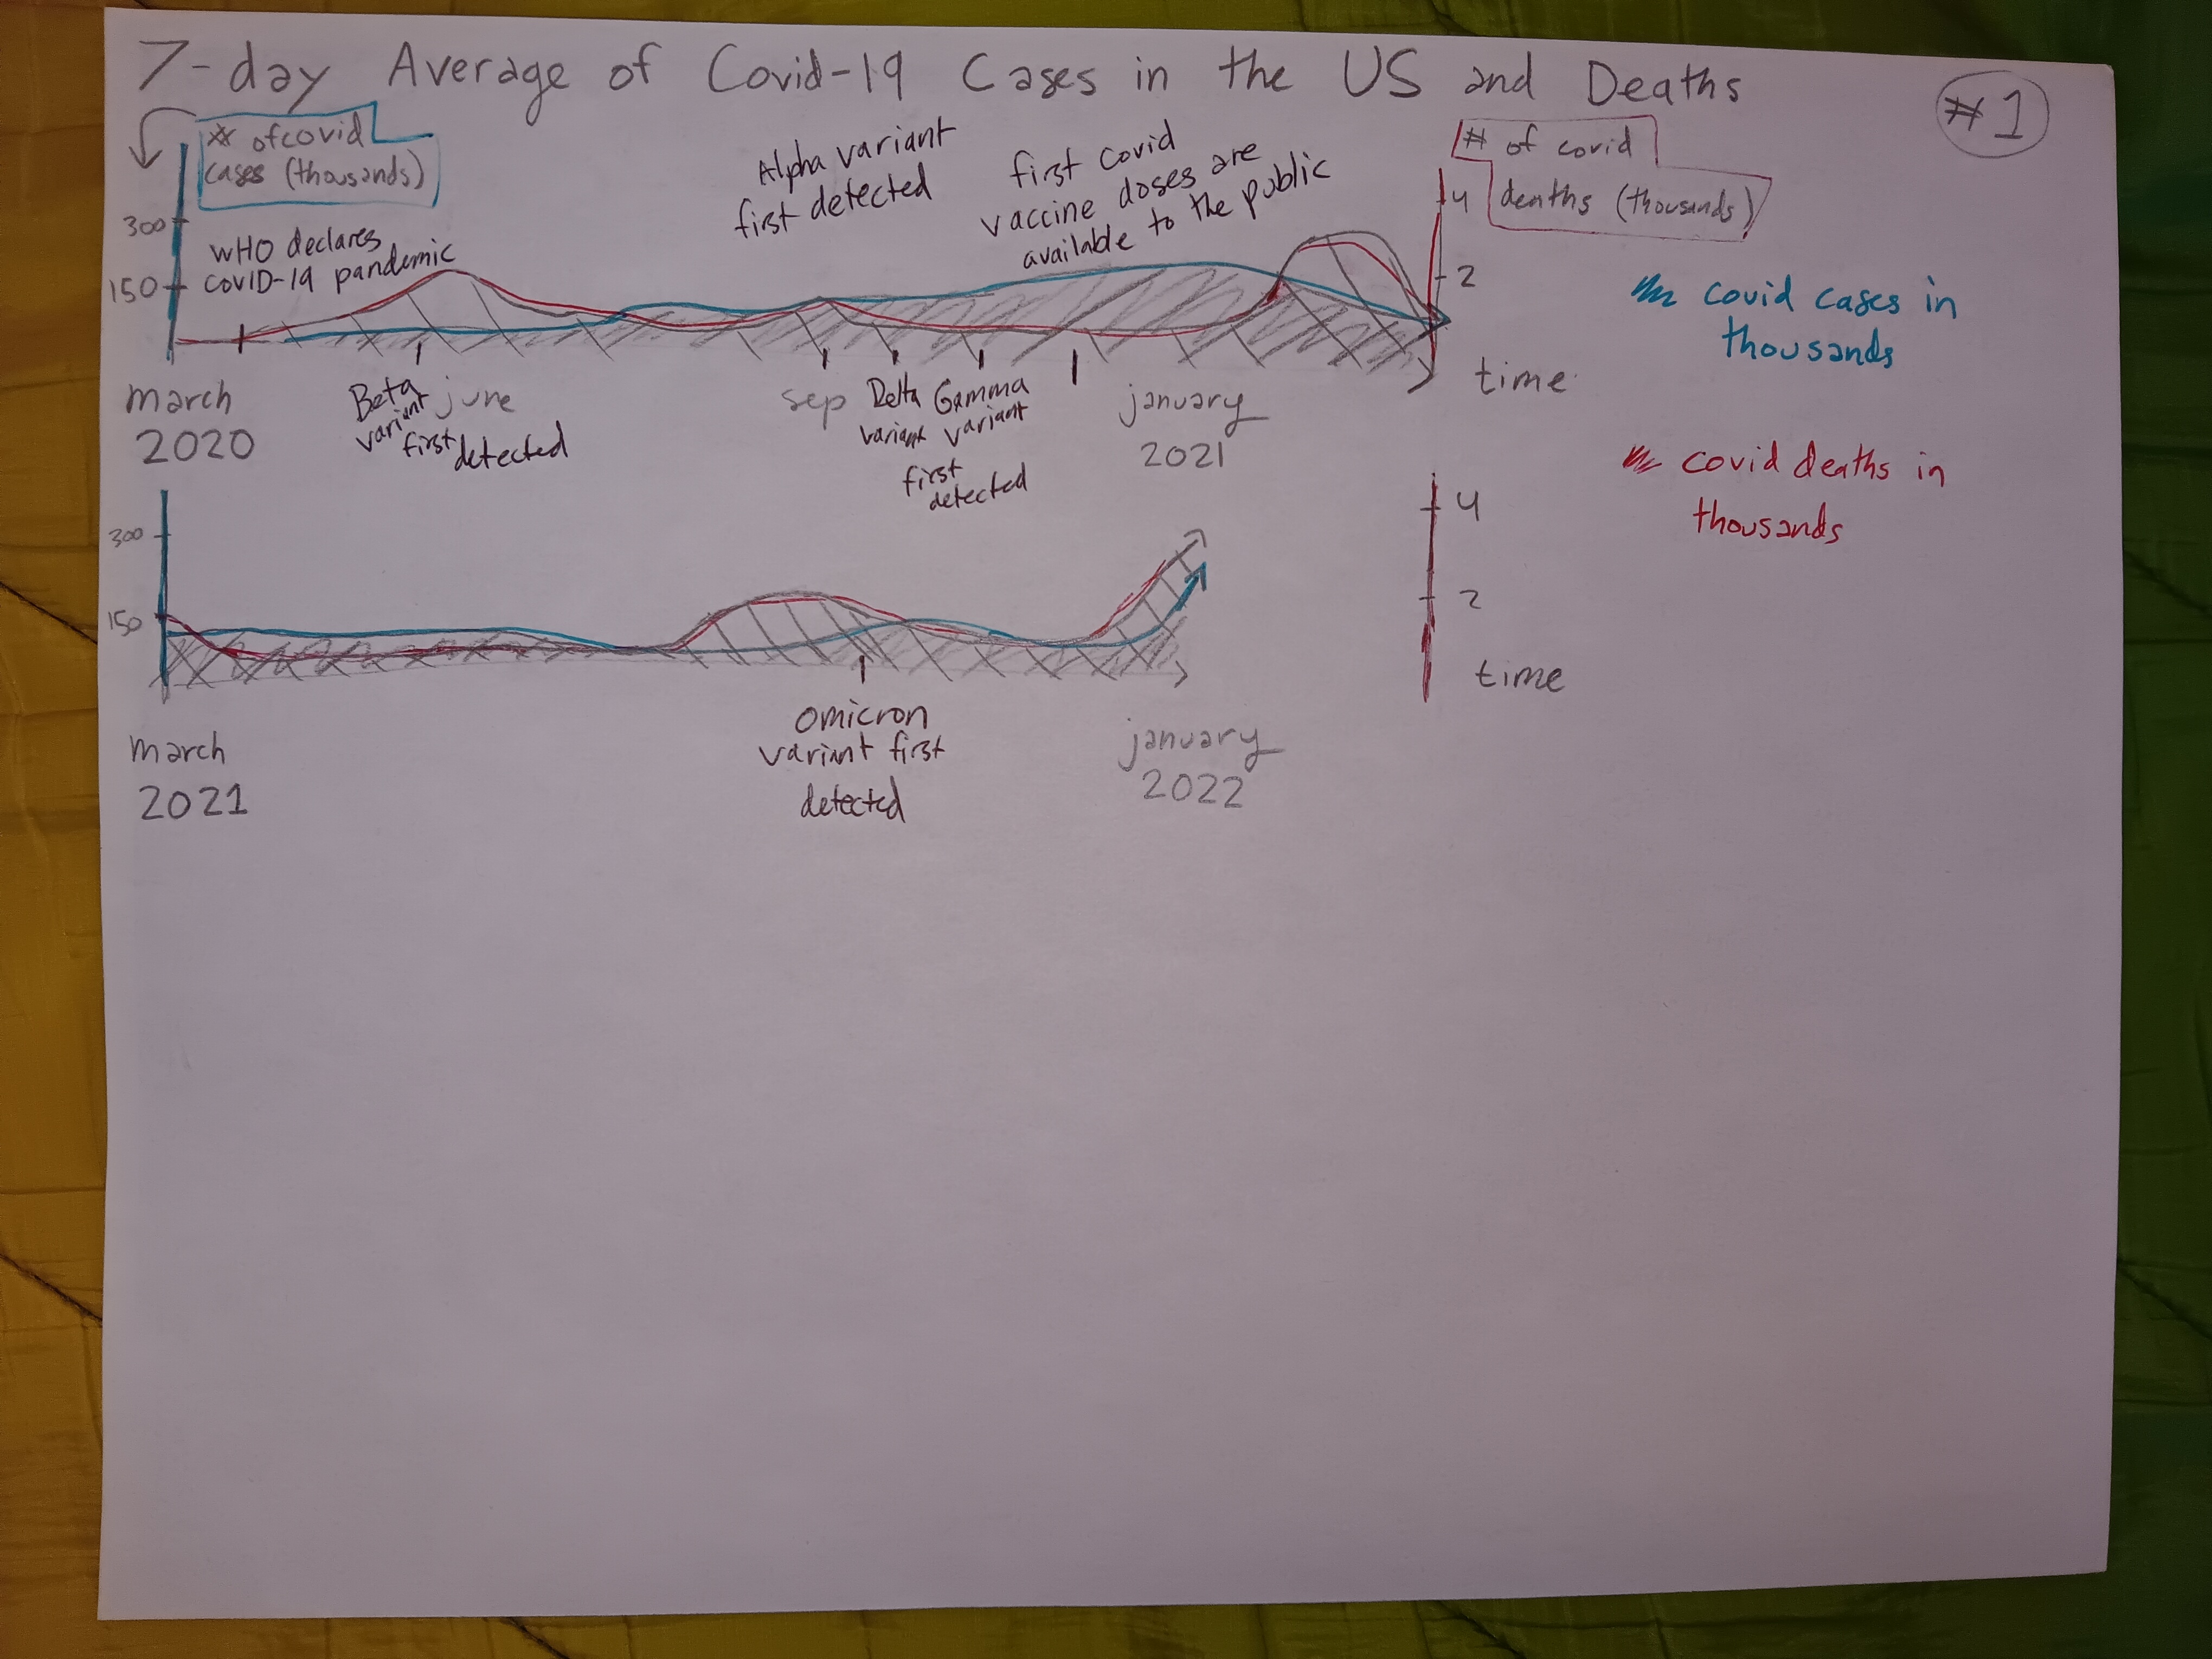 7-day Average of Covid-19 Cases in the US and Deaths
#1
# of covid
cases (thousands)
# of covid
deaths (thousands)
300
150
WHO declares
COVID-19 pandemic
Alpha variant
first detected
first covid
vaccine doses are
available to the public
4
2
covid cases in
thousands
time
march
2020
Beta
variant
first detected
june
sep
Delta
variant
Gamma
variant
first
detected
january
2021
covid deaths in
thousands
300
150
4
2
time
march
2021
omicron
variant first
detected
january
2022